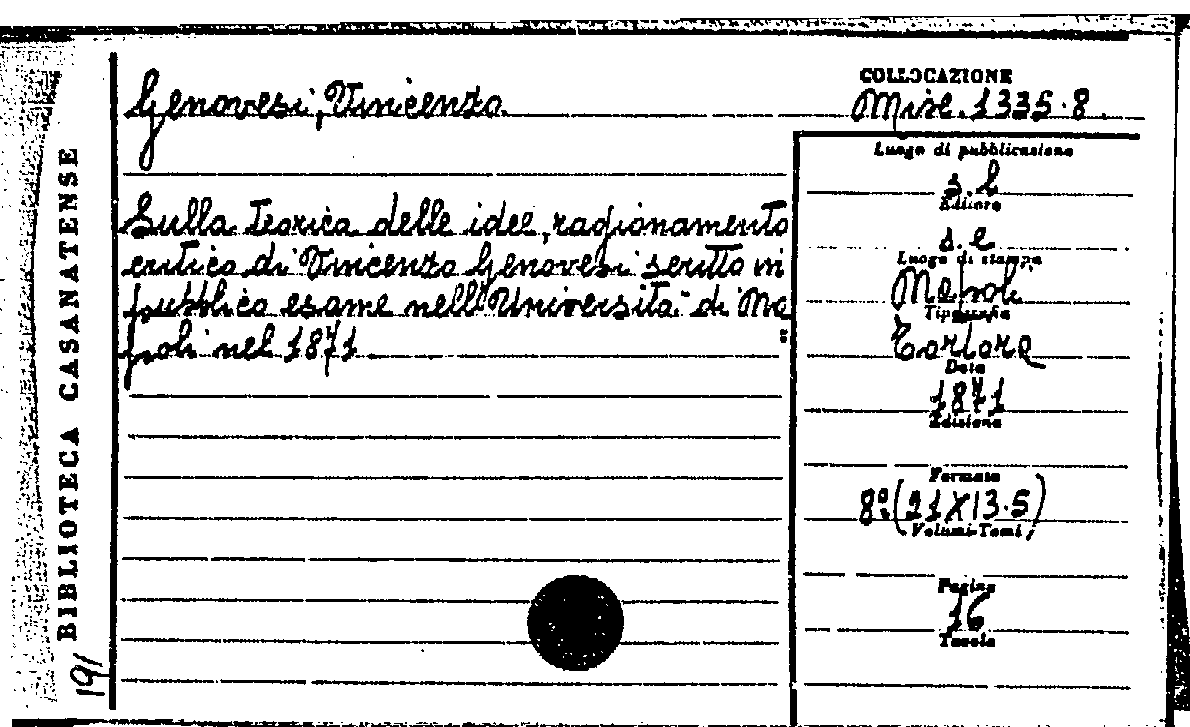 Genovesi, Vincenzo
COLLOCAZIONE
Misc. 1335.8.
Luogo di pubblicazione
s.l
Editore
s.e
Luogo di stampa
Napoli
Tipografia
Tortora
Data
1871
Edizione
Formato
8º (21X13.5)
Volumi-Tomi
Pagine
16
Tavole
Sulla teorica delle idee, ragionamento
critico di Vincenzo Genovesi scritto in
pubblico esame nell'Università di Na
poli nel 1871.
BIBLIOTECA CASANATENSE
191